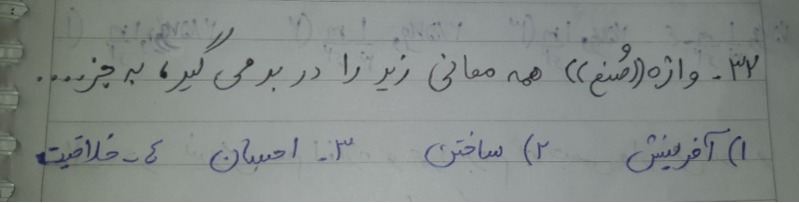 ۳۲- واژه ((صُنع)) همه معانی زیر را در بر می گیرد، به جز....
۱) آفرینش ۲) ساختن ۳- احسان ٤- خلاقیت